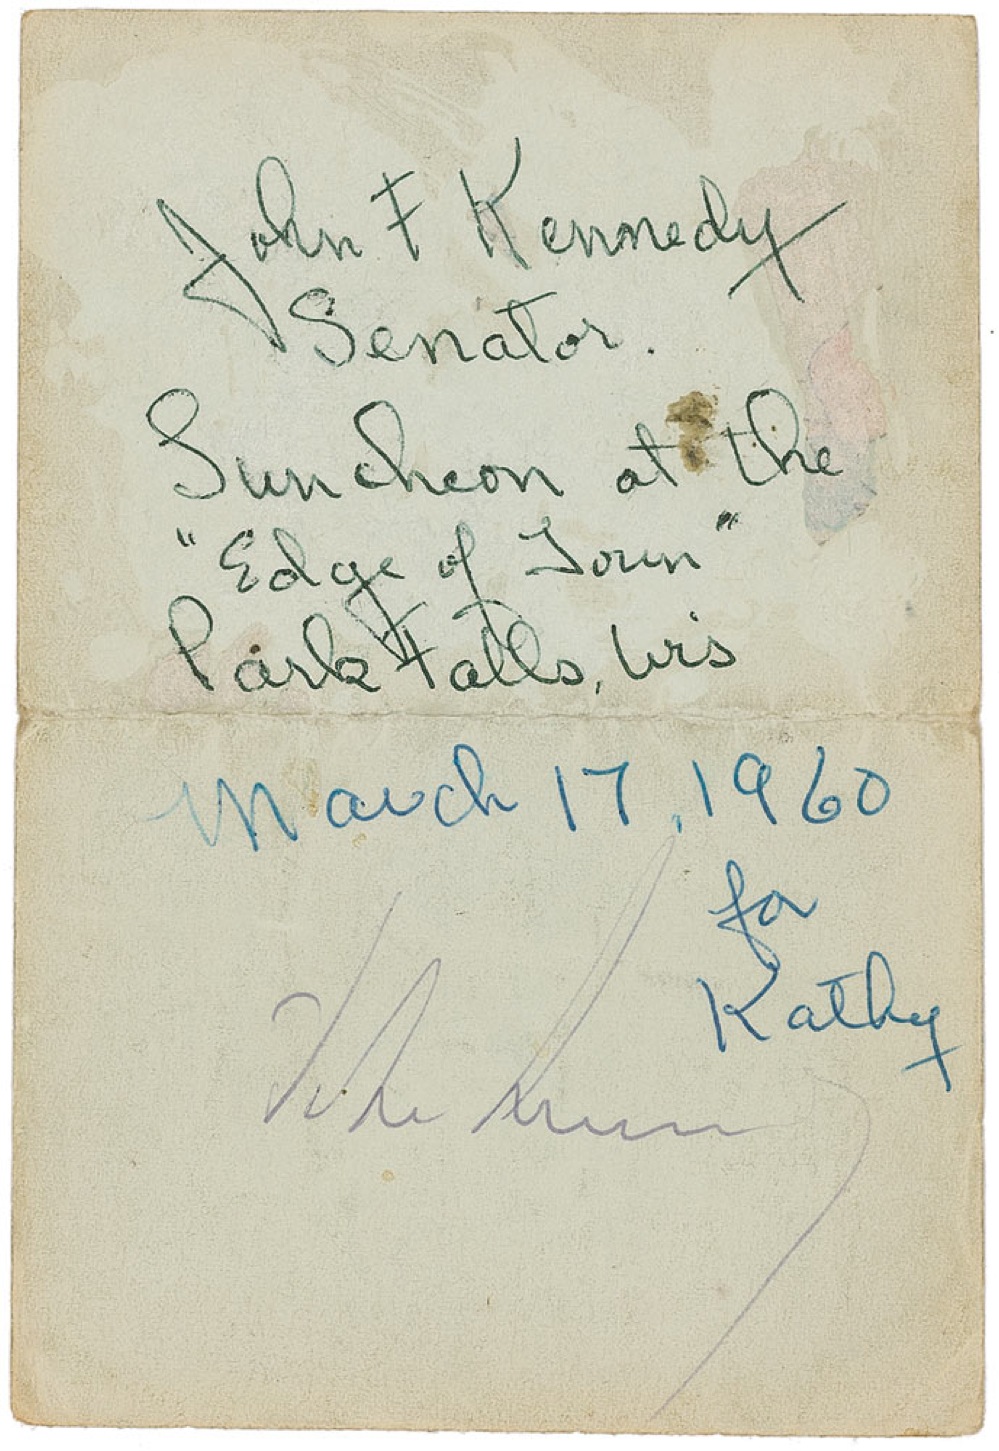 John F Kennedy
Senator.
Luncheon at the
"Edge of Town"
Park Falls, Wis
March 17, 1960
for
Kathy
John Kennedy